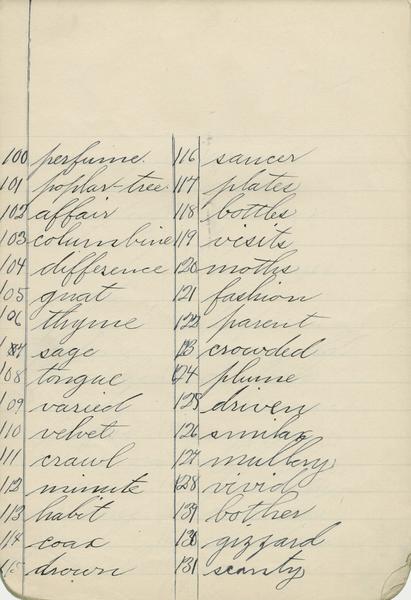 100 perfume.
101 poplar-tree
102 affair
103 columbine
104 difference
105 gnat
106 thyme
107 sage
108 tongue
109 varied
110 velvet
111 crawl
112 minute
113 habit
114 coax
115 drown
116 saucer
117 plates
118 bottles
119 visits
120 moths
121 fashion
122 parent
123 crowded
124 plume
125 driven
126 similar
127 mullbry
128 vivid
139 bother
130 gizzard
131 scanty